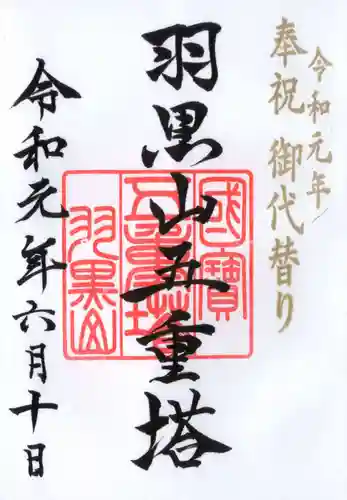 令和元年
奉祝 御代替り
羽黒山五重塔
國寶
五重塔
羽黒山
令和元年六月十日